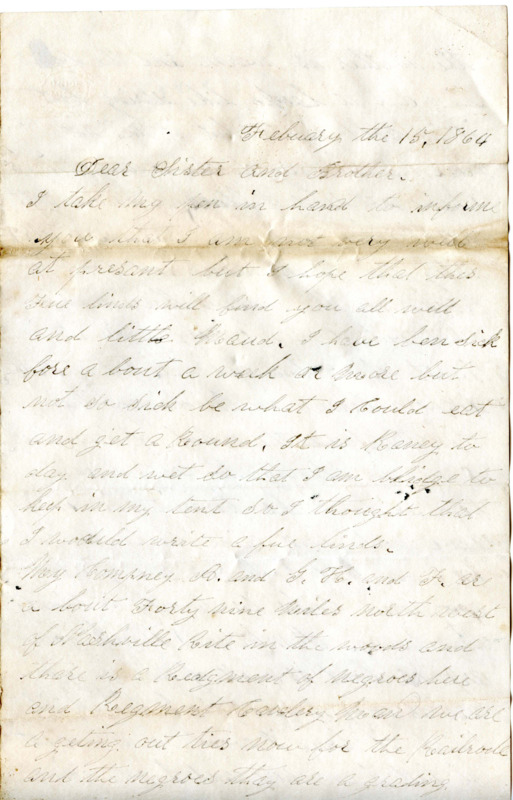 Febuary the 15, 1864
Dear Sister and Brother.
I take my pen in hand to informe
you that I am not very well
at presant but I hope that this
fue linds will find you all well
and little Maud. I have ben sick
fore a bout a week or more but
not so sick be what I Could eat
and get a Round. It is Raney to
day and wet so that I am blidge to
keep in my tent so I thought that
I would write a fue linds.
Compney B. and G. H. and F. ar
a bout Forty nine Miles north west
of Nashville Rite in the woods and
thare is a Redgment of negroes here
and Regament Cavlery Man we are
a geting out ties now for the Railrode
and the negroes thay are a grading